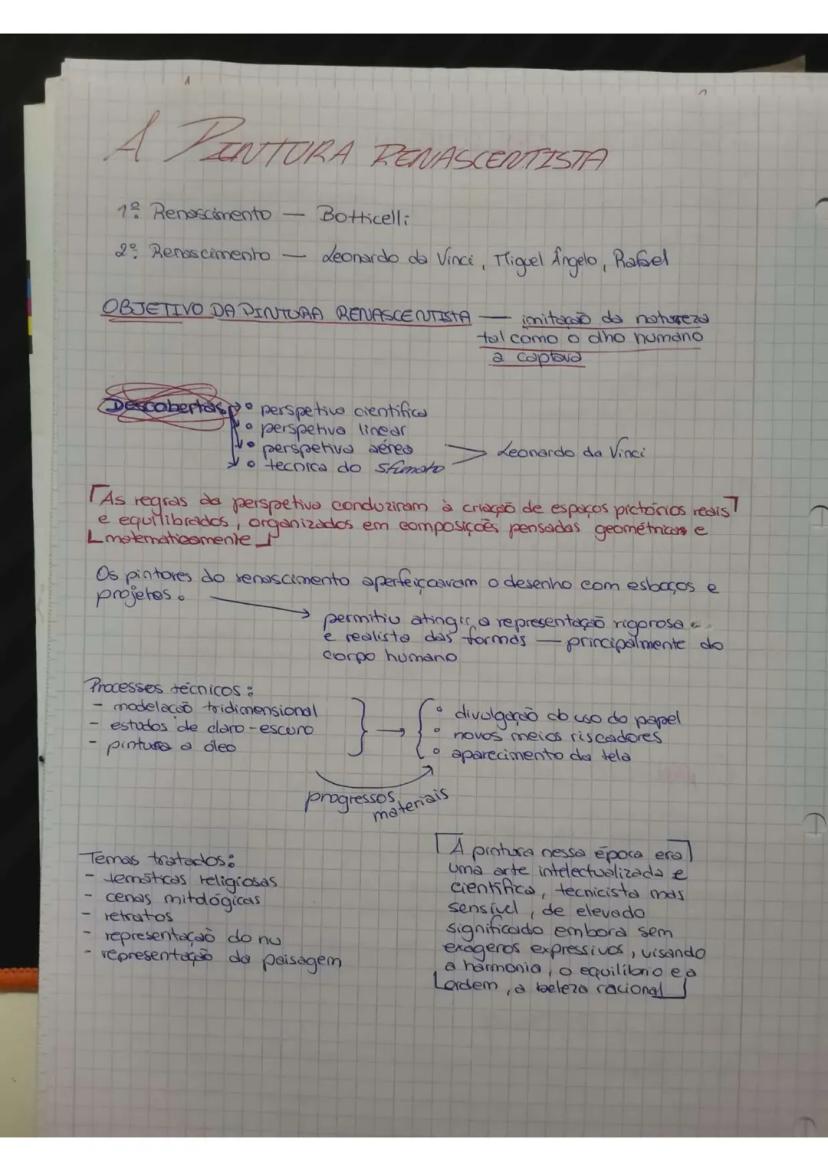 A PINTURA RENASCENTISTA
1º Renascimento — Botticelli
2º Renascimento — Leonardo da Vinci, Miguel Ângelo, Rafael
OBJETIVO DA PINTURA RENASCENTISTA — imitação da natureza
tal como o olho humano
a captava
Descobertas
• perspetiva científica
• perspetiva linear
• perspetiva aérea
• tecnica do sfumato
Leonardo da Vinci
As regras da perspetiva conduziram à criação de espaços pictórios reais
e equilibrados, organizados em composições pensadas geométricas e
matematicamente
Os pintores do renascimento aperfeiçoavam o desenho com esboços e
projetos.
permitiu atingir a representação rigorosa
e realista das formas — principalmente do
corpo humano
Processes técnicos:
- modelação tridimensional
- estudos de claro-escuro
- pintura a óleo
• divulgação do uso do papel
• novos meios riscadores
• aparecimento da tela
progressos
materiais
Temas tratados:
- temáticas religiosas
- cenas mitológicas
- retratos
- representação do nu
- representação da paisagem
A pintura nessa época era
uma arte intelectualizada e
científica, tecnicista mas
sensível, de elevado
significado embora sem
exageros expressivos, visando
a harmonia, o equilíbrio e a
ordem, a beleza racional